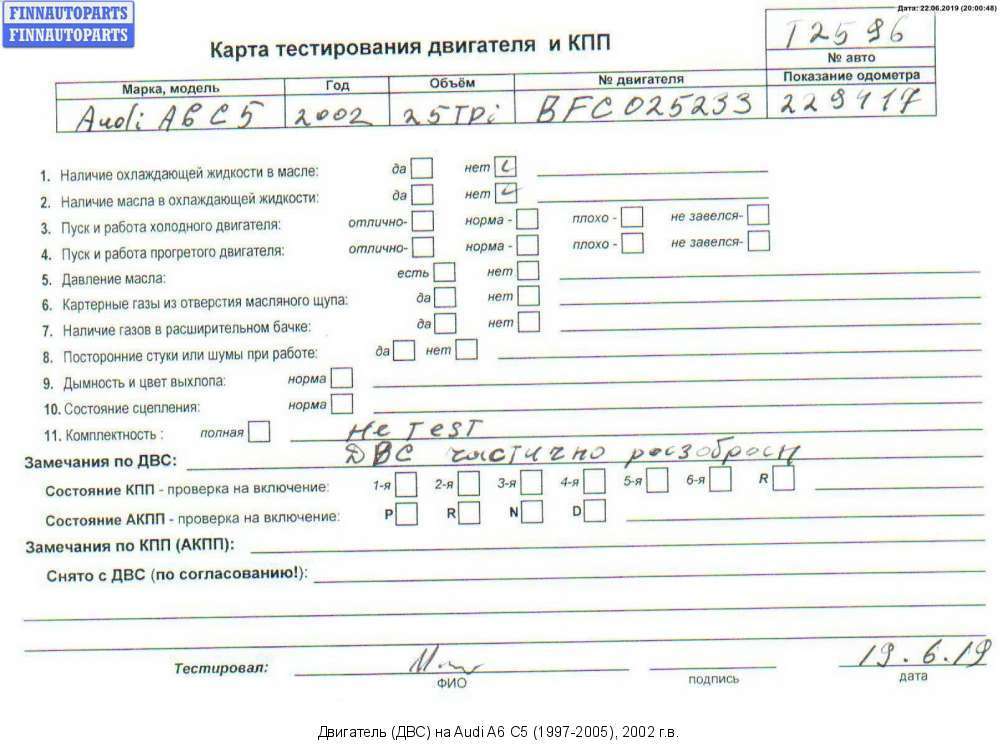 FINNAUTOPARTS
FINNAUTOPARTS
Дата: 22.06.2019 (20:00:48)
Карта тестирования двигателя и КПП
T2596
№ авто
Марка, модель Год Объём № двигателя Показание одометра
Audi A6 C5 2002 25TDi BFC025233 229417
1. Наличие охлаждающей жидкости в масле: да нет
2. Наличие масла в охлаждающей жидкости: да нет
3. Пуск и работа холодного двигателя: отлично- норма - плохо - не завелся-
4. Пуск и работа прогретого двигателя: отлично- норма - плохо - не завелся-
5. Давление масла: есть нет
6. Картерные газы из отверстия масляного щупа: да нет
7. Наличие газов в расширительном бачке: да нет
8. Посторонние стуки или шумы при работе: да нет
9. Дымность и цвет выхлопа: норма
10. Состояние сцепления: норма
11. Комплектность : полная не тest
Замечания по ДВС: ДВС частично
Состояние КПП - проверка на включение: 1-я 2-я 3-я 4-я 5-я 6-я R
Состояние АКПП - проверка на включение: P R N D
Замечания по КПП (АКПП):
Снято с ДВС (по согласованию!):
Тестировал: 19.6.19
ФИО подпись дата
Двигатель (ДВС) на Audi A6 C5 (1997-2005), 2002 г.в.